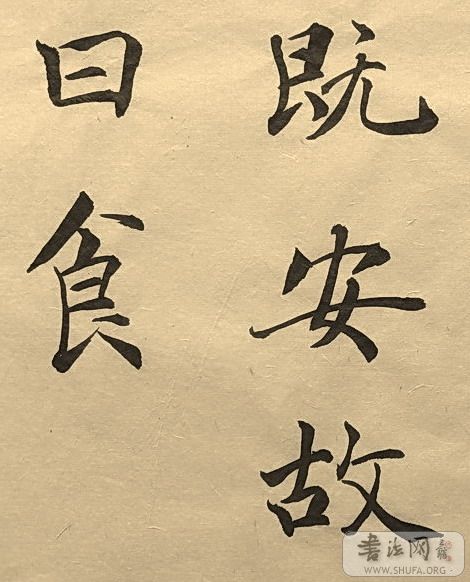 既安故
曰食
書法网
WWW.SHUFA.ORG